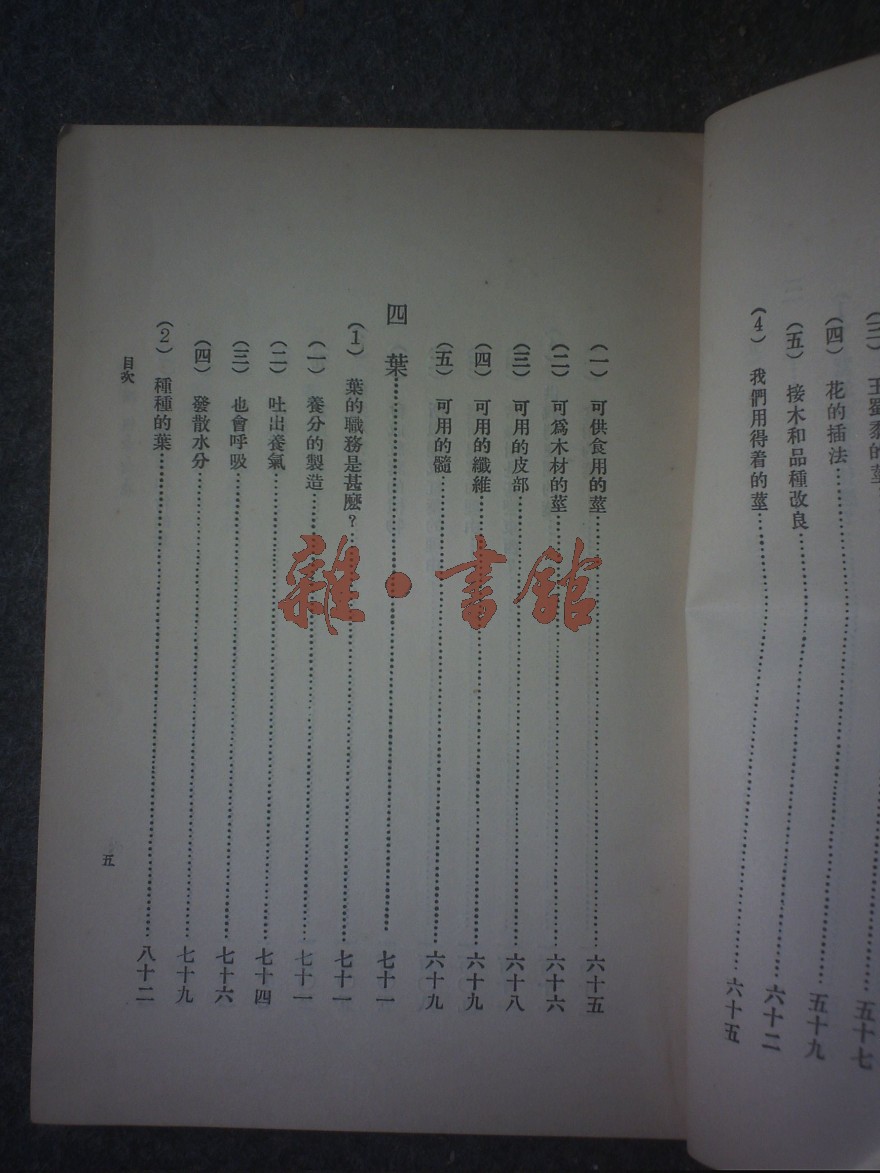 玉蜀黍的莖……五十七
(四) 花的插法……五十九
(五) 接木和品種改良……六十二
(4) 我們用得着的莖……六十五
(一) 可供食用的莖……六十五
(二) 可爲木材的莖……六十六
(三) 可用的皮部……六十八
(四) 可用的纖維……六十九
(五) 可用的髓……六十九
四 葉……七十一
(1) 葉的職務是甚麼?……七十一
(一) 養分的製造……七十一
(二) 吐出養氣……七十四
(三) 也會呼吸……七十六
(四) 發散水分……七十九
(2) 種種的葉……八十二
目次
五
雜·書館